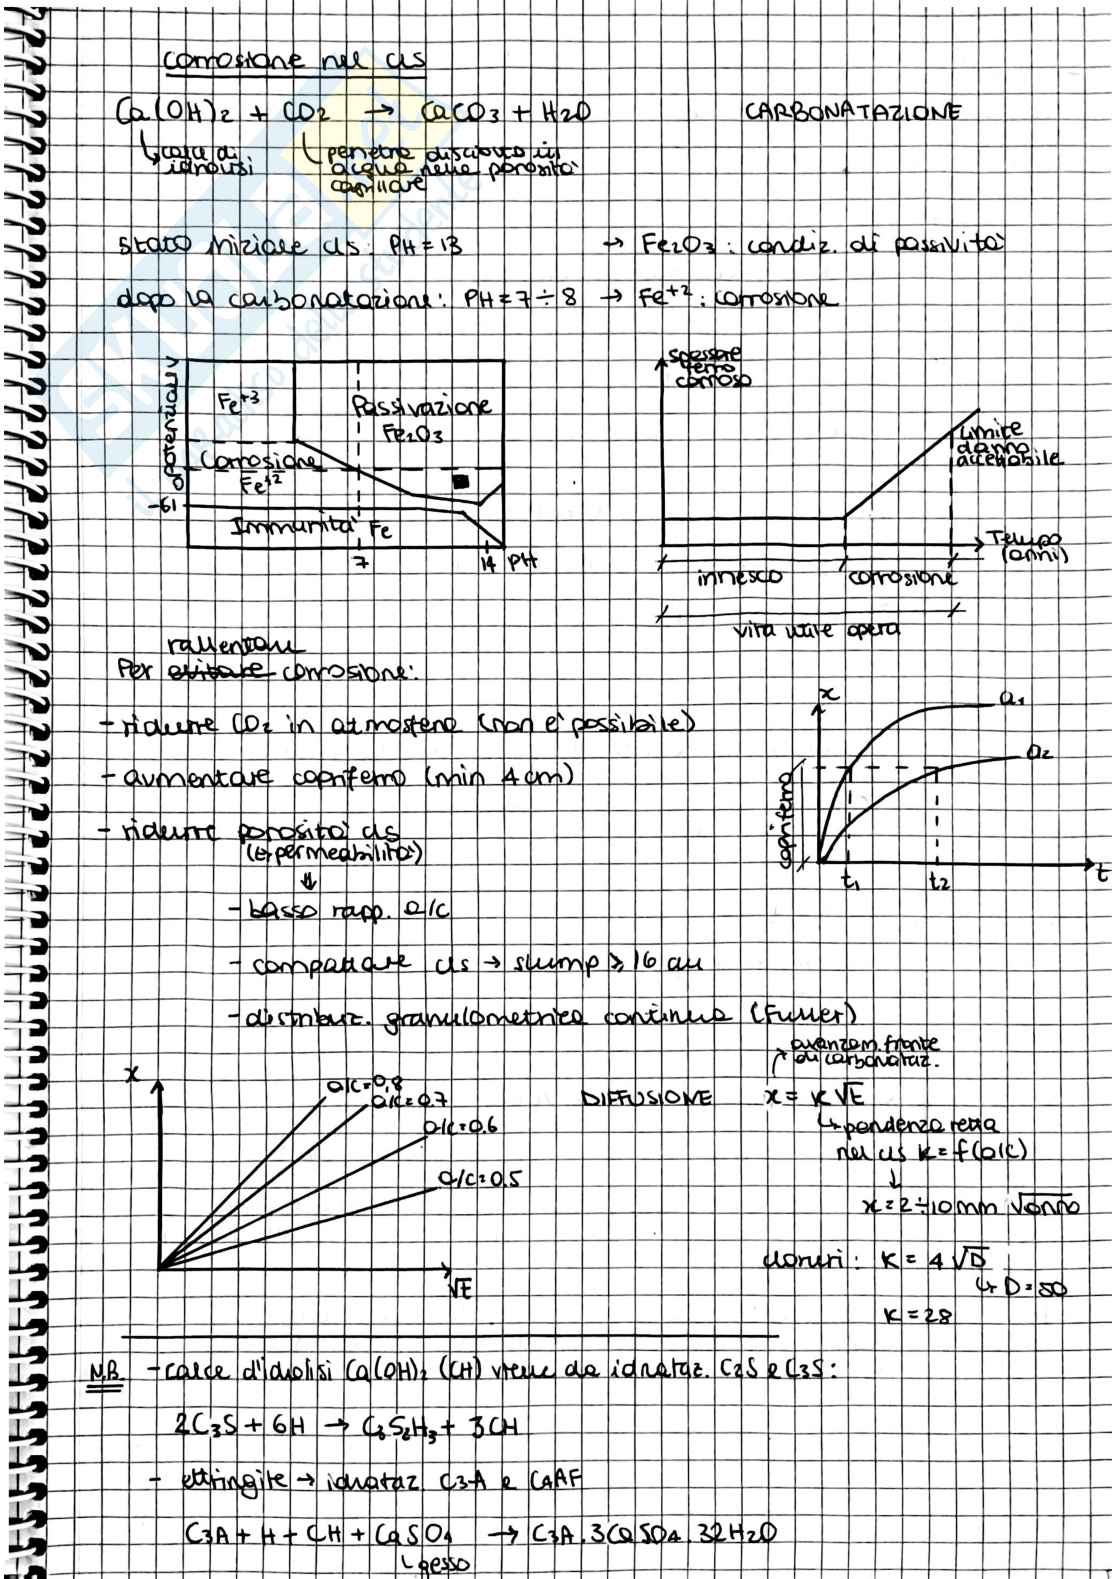 corrosione nel cls
Ca(OH)2 + CO2 → CaCO3 + H2O CARBONATAZIONE
↳ calce di idrolisi
↳ penetra disciolto in acqua nelle porosità capillare
stato iniziale cls: PH = 13 → Fe2O3 : condiz. di passività
dopo la carbonatazione: PH = 7 ÷ 8 → Fe+2 : corrosione
potenziali V
Fe+3
Passivazione
Fe2O3
Corrosione
Fe+2
-61
Immunità Fe
7
14 PH
spessore
ferro
corroso
limite
danno
accettabile
Tempo
(anni)
innesco
corrosione
vita utile opera
rallentare
Per evitare corrosione:
- ridurre CO2 in atmosfera (non è possibile)
- aumentare copriferro (min 4 cm)
- ridurre porosità cls
(e permeabilità)
⇓
- basso rapp. a/c
- compattare cls → slump ≥ 16 cm
- distribuz. granulometrica continua (Fuller)
x
a1
a2
copriferro
t1
t2
t
x
a/c=0.8
a/c=0.7
a/c=0.6
a/c=0.5
√t
avanzam. fronte
di carbonataz.
DIFFUSIONE x = K√t
↳ pendenza retta
nel cls K = f(a/c)
↓
x = 2 ÷ 10 mm √anno
cloruri : K = 4 √D
↳ D = 50
K = 28
N.B. - calce d'idrolisi Ca(OH)2 (CH) viene da idrataz. C2S e C3S :
2C3S + 6H → C3S2H3 + 3CH
- ettringite → idrataz. C3A e C4AF
C3A + H + CH + CaSO4 → C3A . 3CaSO4 . 32H2O
↳ gesso